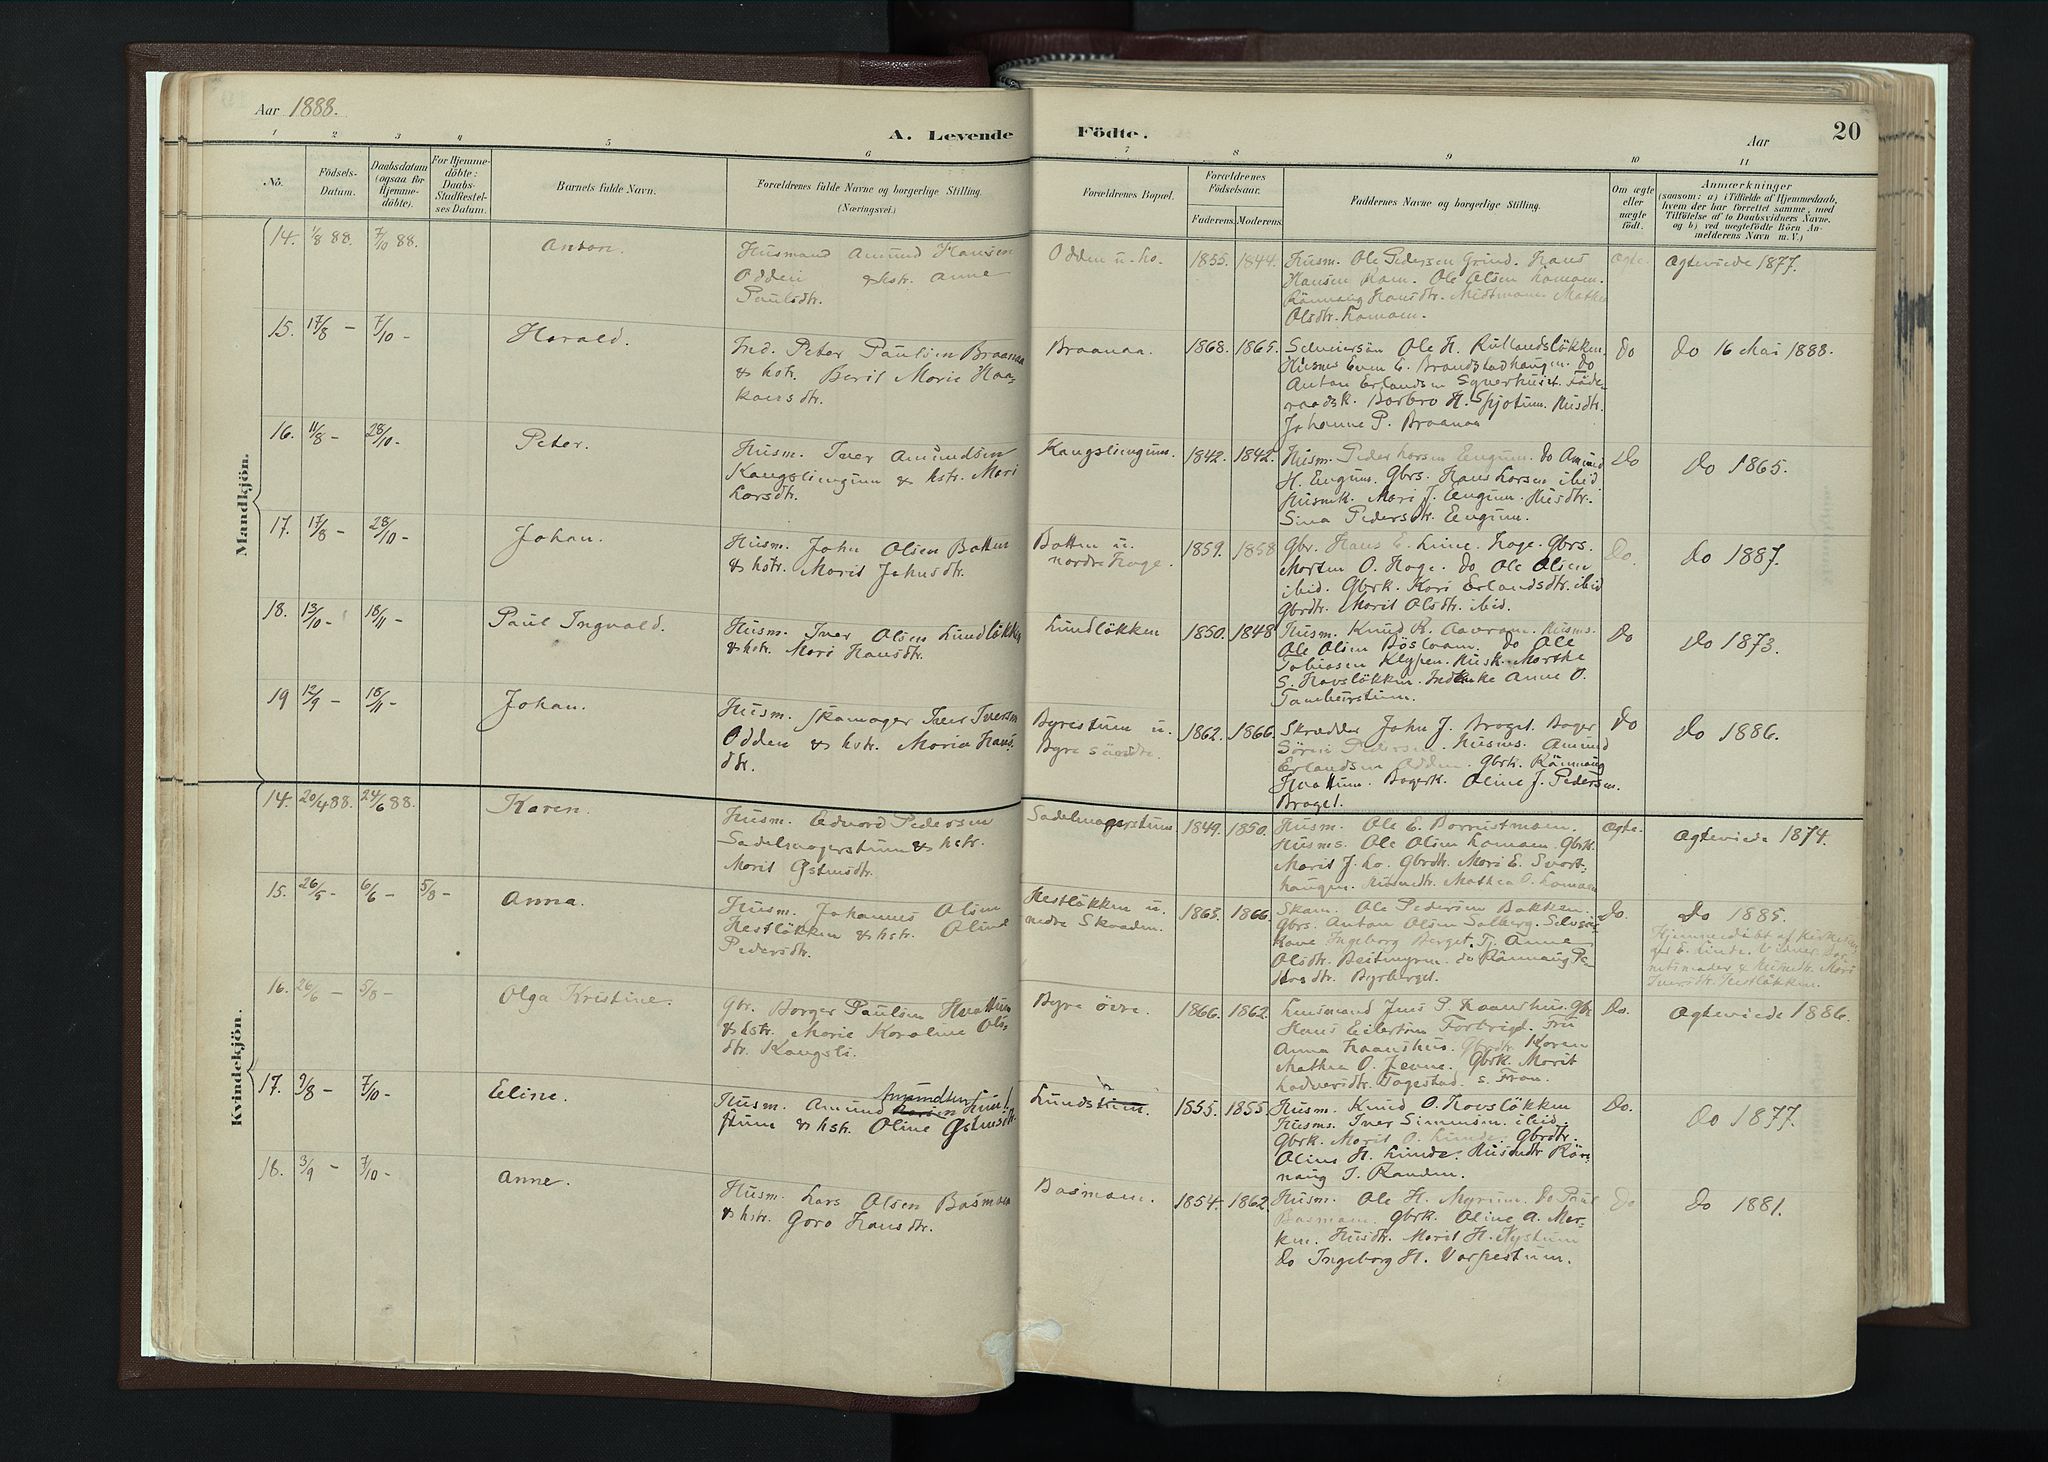 Aar 1888.
A. Levende Födte.
Aar
20
1 2 3 4 5 6 7 8 9 10 11
No.
Födsels-Datum.
Daabsdatum (ogsaa for Hjemme-döbte).
For Hjemme-döbte: Daabs-Stadfestel-ses Datum.
Barnets fulde Navn.
Forældrenes fulde Navne og borgerlige Stilling. (Næringsvei.)
Forældrenes Bopæl.
Forældrenes Födselsaar.
Faderens. Moderens.
Faddernes Navne og borgerlige Stilling.
Om ægte eller uægte födt.
Anmærkninger
(saasom: a) i Tilfælde af Hjemmedaab,
hvem der har forrettet samme, med
Tilföielse af to Daabsvidners Navne,
og b) ved uægtefödte Börn An-
melderens Navn m. V.)
Mandkjön.
14. 1/8 88. 7/10 88. Anton.
Husmand Amund Hansen
Odden & hstr. Anne
Paulsdtr.
Odden u. Lo. 1855. 1844.
Husm. Ole Pedersen Grind. Hans
Hansen Ole Olsen Lomoen.
Rönnaug Hansdtr. Mathea
Olsdtr. Lomoen.
Ægte. Ægteviede 1877.
15. 17/8 - 7/10 - Harald.
Ind. Peter Paulsen Braanaa
& hstr. Berit Marie Haa-
kensdtr.
Braanaa. 1868. 1865.
Selveiersön Ole H. Rullandslökken.
Husms Even E. Brandstadhaugen. do
Anton Erlandsen Föde-
raadsk. Barbro H. Sjotum. Husdtr.
Johanne P. Braanaa
Do Do 16 Mai 1888.
16. 11/8 - 28/10 - Peter.
Husm. Iver Amundsen
Kangsliengum & hstr. Mari
Larsdtr.
Kangsliengum. 1842. 1842.
Husm. Peder Larsen Engum. do Amund
H. Engum. Gbrs. Hans Larsen ibid
Husmk. Mari J. Engum. Husdtr.
Sina Pedersdtr. Engum.
Do Do 1865.
17. 17/8 - 28/10 - Johan.
Husm. John Olsen Batten
& hstr. Marit Johnsdtr.
Batten u.
nordre Hage. 1859. 1858
Gbr. Hans E. Hage. Gbrs.
Morten O. Hage. do Ole Olsen
ibid. Gbrk. Kari Erlandsdtr. ibid
Gbrdtr. Marit Olsdtr. ibid.
Do. Do 1887.
18. 13/10 - 18/11 - Paul Ingvald.
Husm. Iver Olsen Lundlökken
& hstr. Mari Hansdtr.
Lundlökken 1850. 1848
Husm. Knud K. Husms.
Ole Olsen do Ole
Tobiasen Klypen. Husk. Marthe
S. Hovslökken. Anne O.
Do Do 1873.
19 12/9 - 18/11 - Johan.
Husm. Skomager Iver Iversen
Odden & hstr. Maria Hans-
dtr.
Byrestum u.
Byre söndre. 1862. 1866.
Skrædder John J. Braget. Bager
Sören Pedersen. Husms. Amund
Erlandsen Odden. Gbrk. Rönnaug
Hvattum. Bagerk. Oline J. Pedersen
Braget.
Do Do 1886.
Kvindekjön.
14. 20/4 88. 24/6 88. Karen.
Husm. Edvard Pedersen
Sadelmagerstuen & hstr.
Marit Östensdtr.
Sadelmagerstuen. 1849. 1850.
Husm. Ole E.
Husms. Ole Olsen Lomoen. Gbrk.
Marit J. Lo. Gbrdtr. Mari E. Svart-
haugen. Husmdtr. Mathea O. Lomoen
Ægte. Ægteviede 1874.
15. 26/5 - 6/6 - 5/8 - Anna.
Husm. Johannes Olsen
Hestlökken & hstr. Oline
Pedersdtr.
Hestlökken u.
nedre Skaaden. 1863. 1866.
Skom. Ole Pedersen Bakken.
Gbrs. Anton Olsen Solberg. Selveier-
kone Ingeborg Berget. Tj. Anne
Olsdtr. Beitmyren. do Rönnaug Pe-
dersdtr. Byrberget.
Do. Do 1885.
Hjemmedöbt af Kirkesan-
ger E. Linde. Vidner Bar-
netsmoder & Husmdtr. Mari
Iversdtr. Hestlökken.
16. 26/6 - 5/8 - Olga Kristine.
Gbr. Borger Paulsen Hvattum
& hstr. Marie Karoline Ols-
dtr. Kangsli.
Byre övre. 1866. 1862.
Lensmand Jens P. Kaarshus. Gbr
Hans Eilertsen Forbrigd. Fru
Anna Kaarshus. Gbrdtr. Karen
Mathea O. Gbrk. Marit
Lodversdtr. Fagestad. s. Fron.
Do. Ægteviede 1886.
17. 9/8 - 7/10 - Eline.
Husm. Amund Amundsen Lund-
stuen & hstr. Oline Östensdtr.
Lund 1855. 1855
Husm. Knud O. Hovslökken
Husms. Iver Simensen ibid.
Gbrk. Marit O. Linde. Gbrdtr.
Oline H. Linde. Husmdtr Rön-
naug T. Randen.
Do. Do 1877.
18. 3/9 - 7/10 - Anne.
Husm. Lars Olsen Basmoen
& hstr. Goro Hansdtr.
Basmoen. 1854. 1862
Husm. Ole H. Myrum. Do Paul
Basmoen. Gbrk. Oline A. Mor-
ken. Husdtr. Marit H. Nystuen
Do Ingeborg H. Varpestuen.
Do Do 1881.